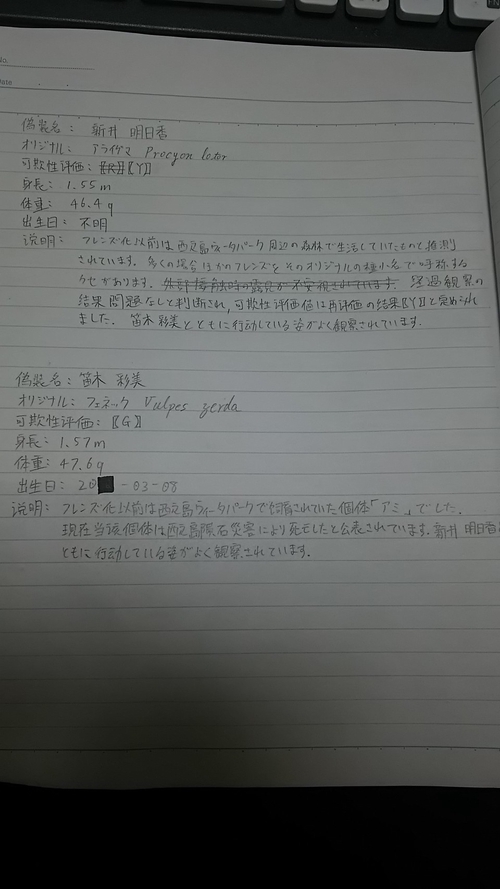 No.
Date
偽装名： 新井 明日香
オリジナル： アライグマ Procyon lotor
可欺性评価：〖R〗〖Y〗
身長： 1.55m
体重： 46.4g
出生日： 不明
说明： フレンズ化以前は西之島ゔィータパーク周辺の森林で生活していたものと推測
されています. 多くの場合ほかのフレンズをそのオリジナルの種小名で呼称する
クセがあります. 外部接触時の露見が不安視されています. 経過観察の
結果問題なしと判断され, 可欺性評価値は再評価の結果〖Y〗と定められ
ました. 笛木彩美とともに行動している姿がよく観察されています.
偽装名： 笛木 彩美
オリジナル： フェネック Vulpes zerda
可欺性评価：〖G〗
身長： 1.57m
体重： 47.6g
出生日： 20 -03-08
说明： フレンズ化以前は西之島ゔィータパークで飼育されていた個体「アミ」でした.
現在当該個体は西之島隕石災害により死亡したと公表されています. 新井 明日香
ともに行動している姿がよく観察されています.